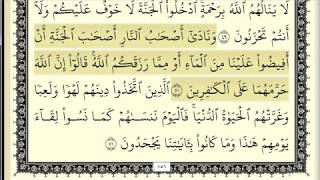 لَا يَنَالُهُمُ ٱللَّهُ بِرَحْمَةٍ ٱدْخُلُوا۟ ٱلْجَنَّةَ لَا خَوْفٌ عَلَيْكُمْ وَلَآ
أَنتُمْ تَحْزَنُونَ ﴿٤٩﴾ وَنَادَىٰٓ أَصْحَٰبُ ٱلنَّارِ أَصْحَٰبَ ٱلْجَنَّةِ أَنْ
أَفِيضُوا۟ عَلَيْنَا مِنَ ٱلْمَآءِ أَوْ مِمَّا رَزَقَكُمُ ٱللَّهُ قَالُوٓا۟ إِنَّ ٱللَّهَ
حَرَّمَهُمَا عَلَى ٱلْكَٰفِرِينَ ﴿٥٠﴾ ٱلَّذِينَ ٱتَّخَذُوا۟ دِينَهُمْ لَهْوًا وَلَعِبًا
وَغَرَّتْهُمُ ٱلْحَيَوٰةُ ٱلدُّنْيَا فَٱلْيَوْمَ نَنسَىٰهُمْ كَمَا نَسُوا۟ لِقَآءَ
يَوْمِهِمْ هَٰذَا وَمَا كَانُوا۟ بِـَٔايَٰتِنَا يَجْحَدُونَ ﴿٥١﴾
١٥٦